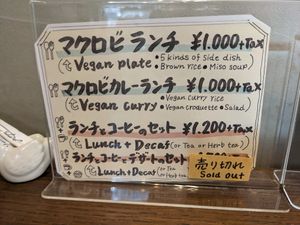 マクロビランチ ¥1.000+Tax
Vegan plate • 5 kinds of side dish
• Brown rice • Miso soup
マクロビカレーランチ ¥1.000+Tax
Vegan curry • Vegan curry rice
• Vegan croquette • Salad
ランチとコーヒーのセット ¥1.200+Tax
Lunch + Decaf (or Tea or Herb tea)
ランチとコーヒーとデザートのセット
Lunch + Decaf (or Tea or Herb tea)
売り切れ
Sold out